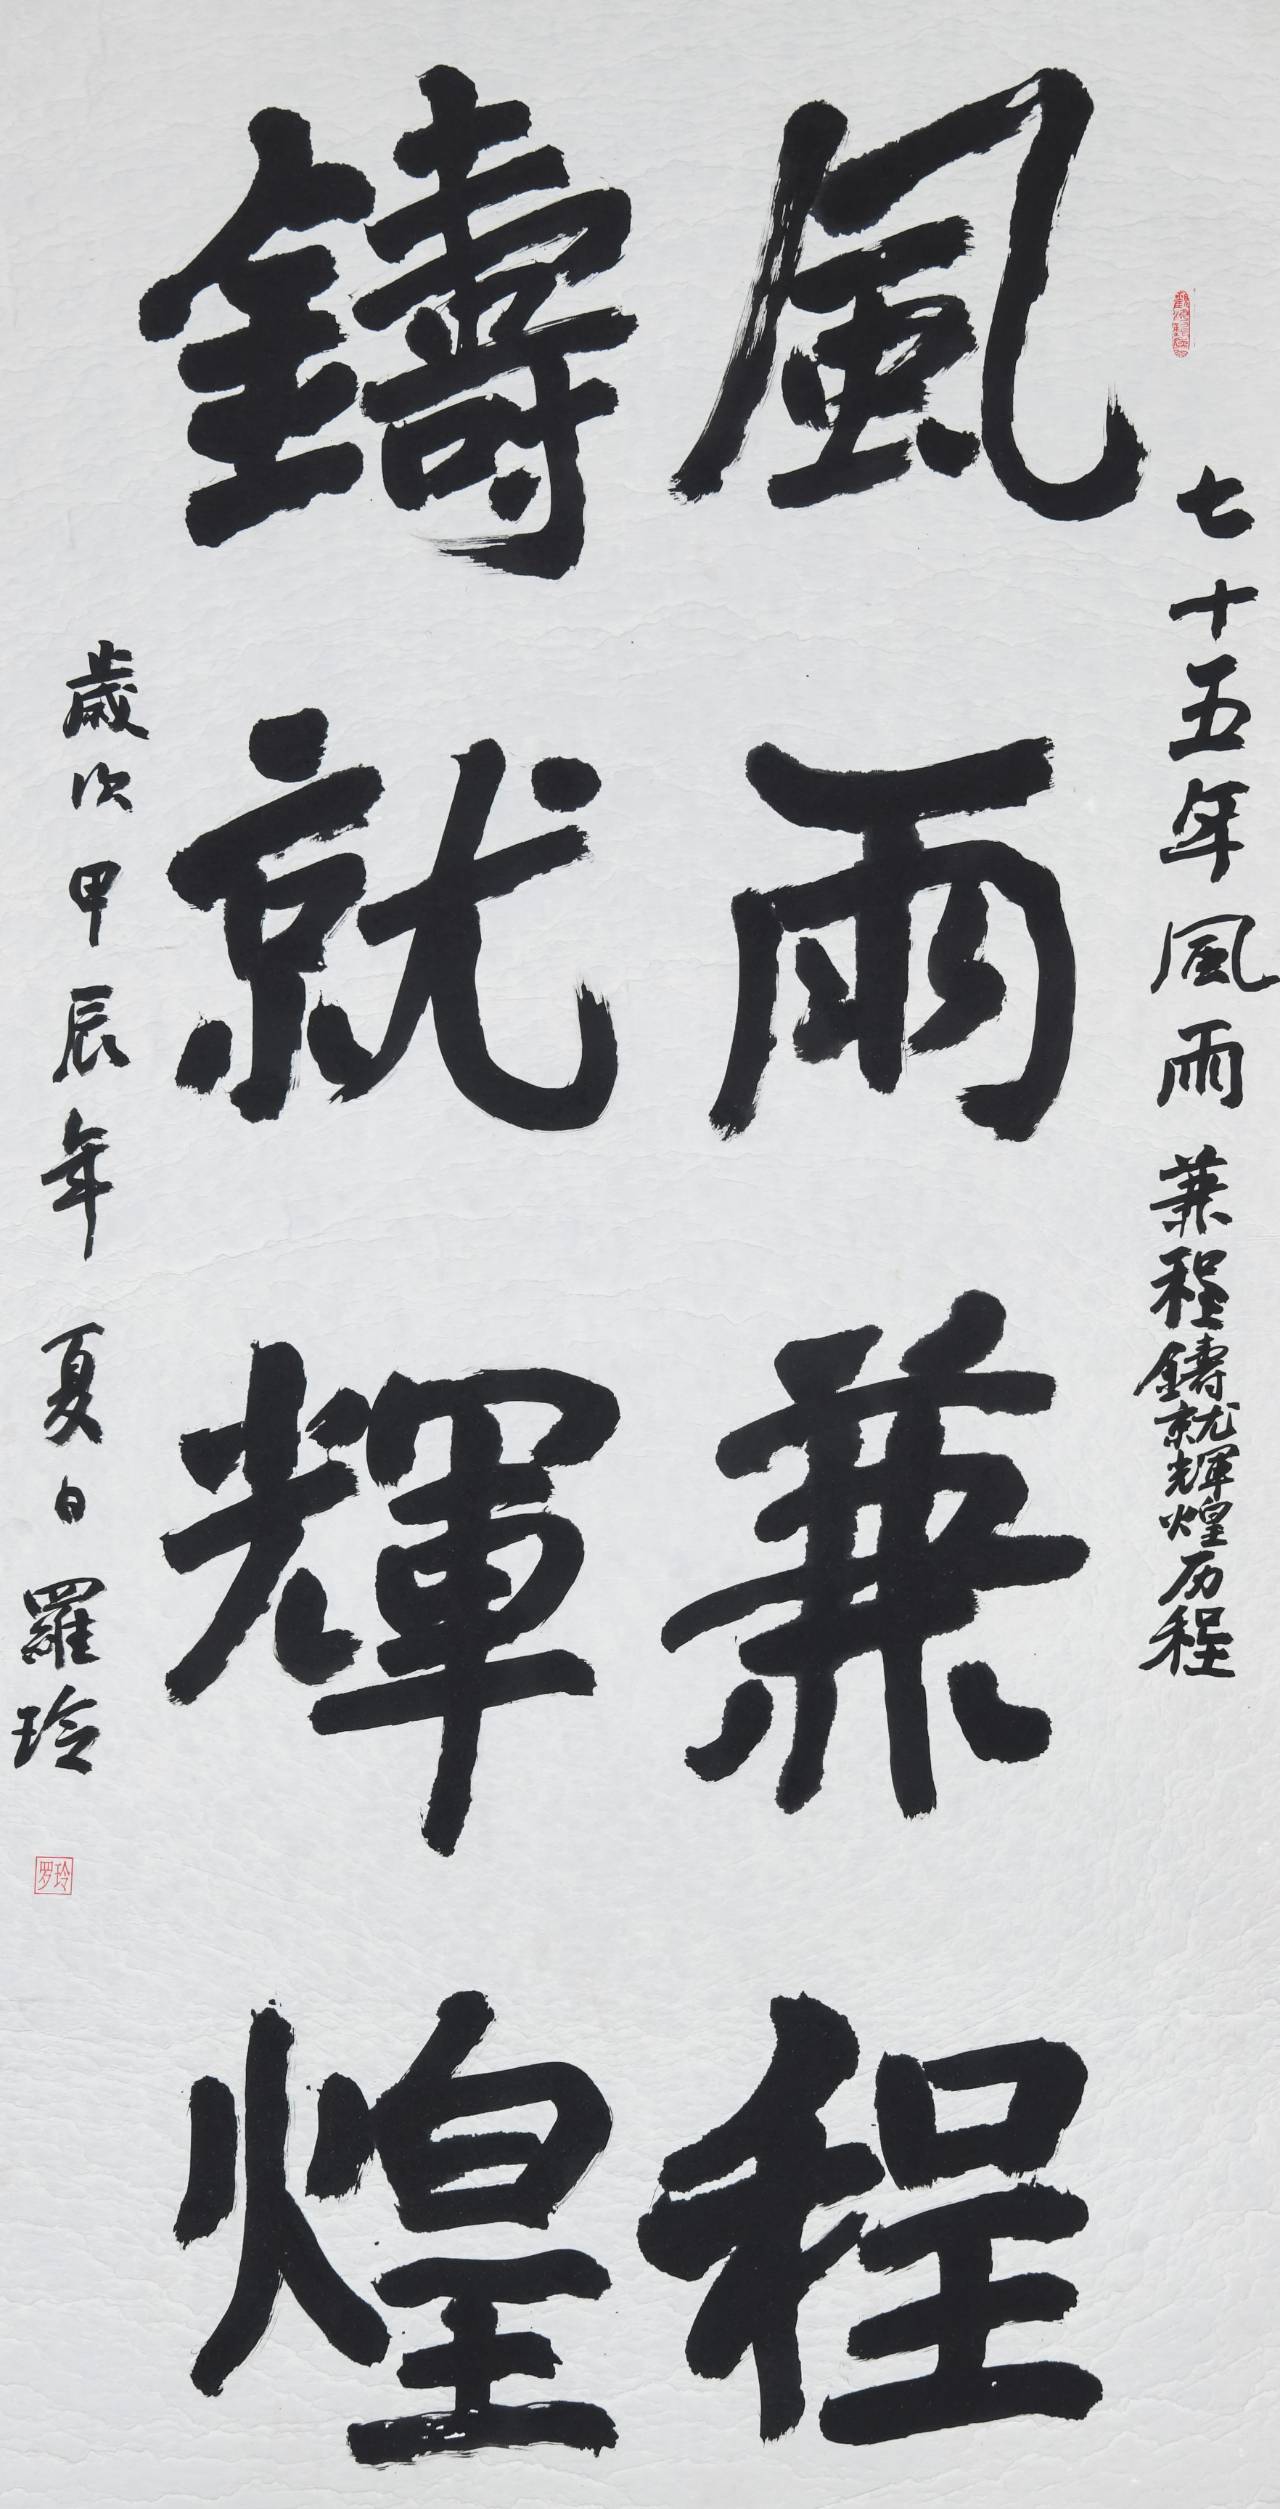 七十五年風雨兼程鑄就輝煌历程
風雨兼程
鑄就輝煌
歲次甲辰年夏日羅玲
罗玲